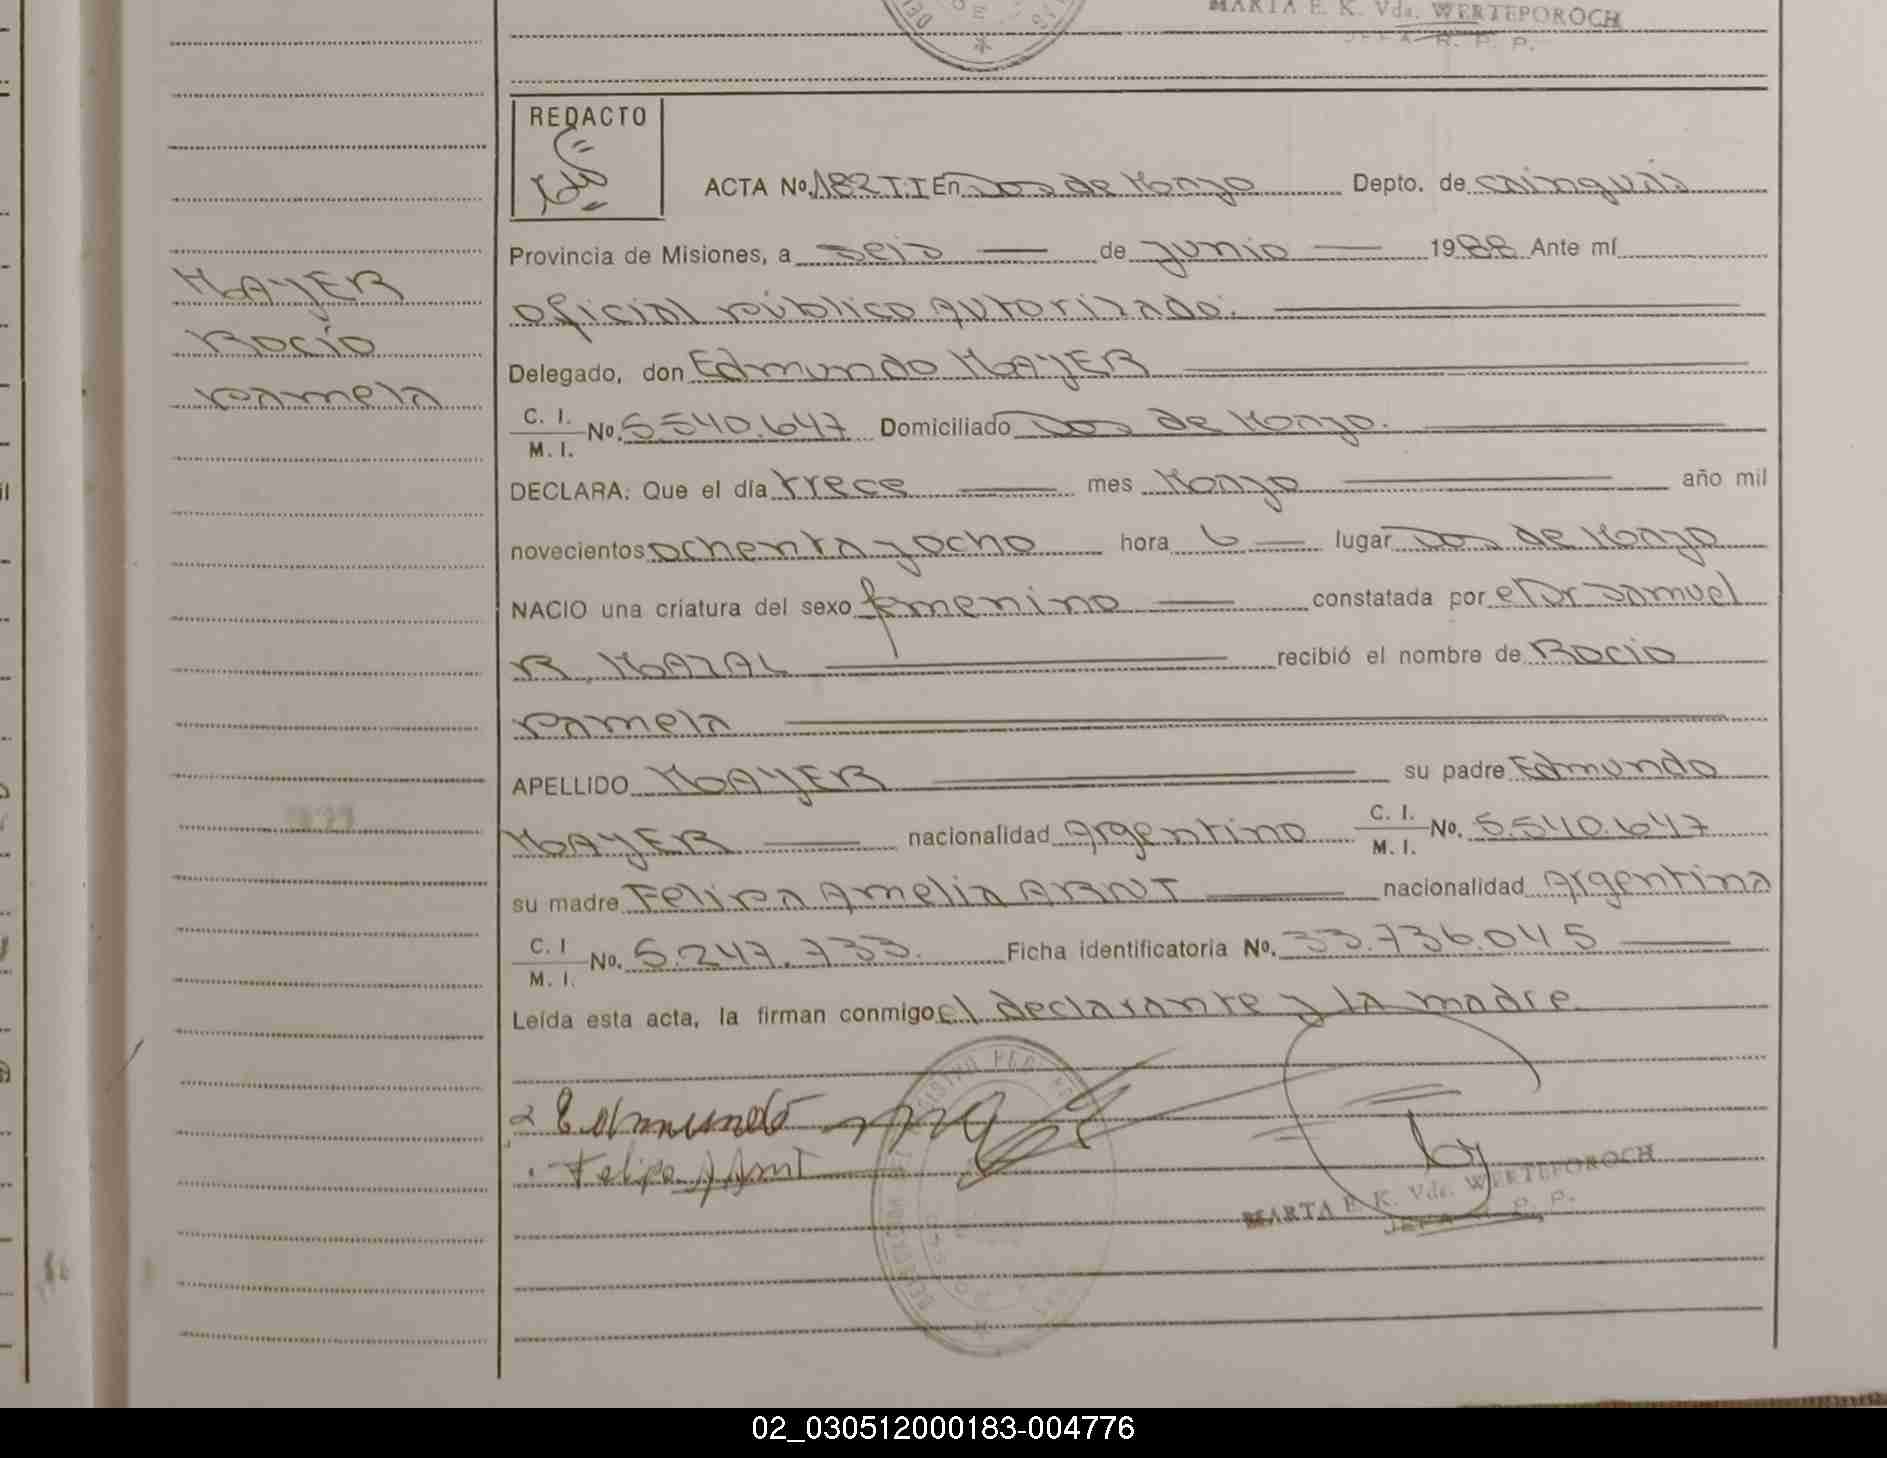 MARTA E. K. Vda. WERTEPOROCH
JEFA R. P. P.
REDACTO
ACTA No. 182 II En Dos de Mayo Depto. de Cainguás
Provincia de Misiones, a seis de junio 1988 Ante mí
MAYER
Rocío
Pamela
oficial público autorizado.
Delegado, don Edmundo MAYER
C. I.
M. I. No. 5.540.647 Domiciliado Dos de Mayo.
DECLARA: Que el día trece mes Mayo año mil
novecientos ochenta y ocho hora 6 lugar Dos de Mayo
NACIO una criatura del sexo femenino constatada por el Dr Samuel
R. MAZAL recibió el nombre de Rocio
Pamela
APELLIDO MAYER su padre Edmundo
MAYER nacionalidad Argentino C. I.
M. I. No. 5.540.647
su madre Felipa Amelia ARNT nacionalidad Argentina
C. I
M. I. No. 5.247.733. Ficha identificatoria No. 33.736.045
Leída esta acta, la firman conmigo el declarante y la madre.
Edmundo
Felipa A Arnt
MARTA E. K. Vda. WERTEPOROCH
JEFA R. P. P.
02_030512000183-004776